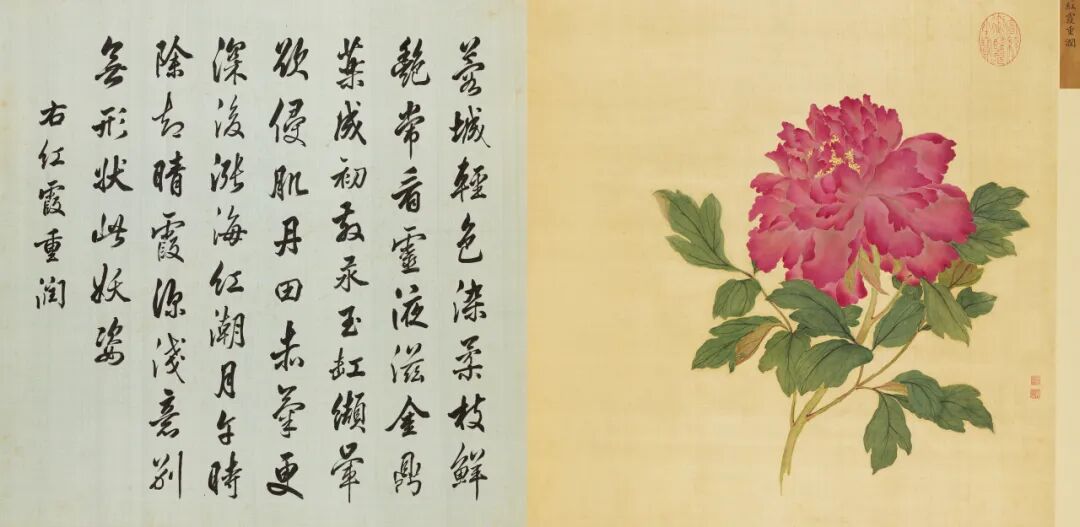 蓉城輕色染柔枝鮮
艷常看靈液滋金鼎
藥成初汞玉缸纈暈
欲侵肌丹田赤氣更
深後漲海紅潮月午時
除却晴霞深淺意別
無形狀此妖姿
右紅霞重潤
紅霞重潤